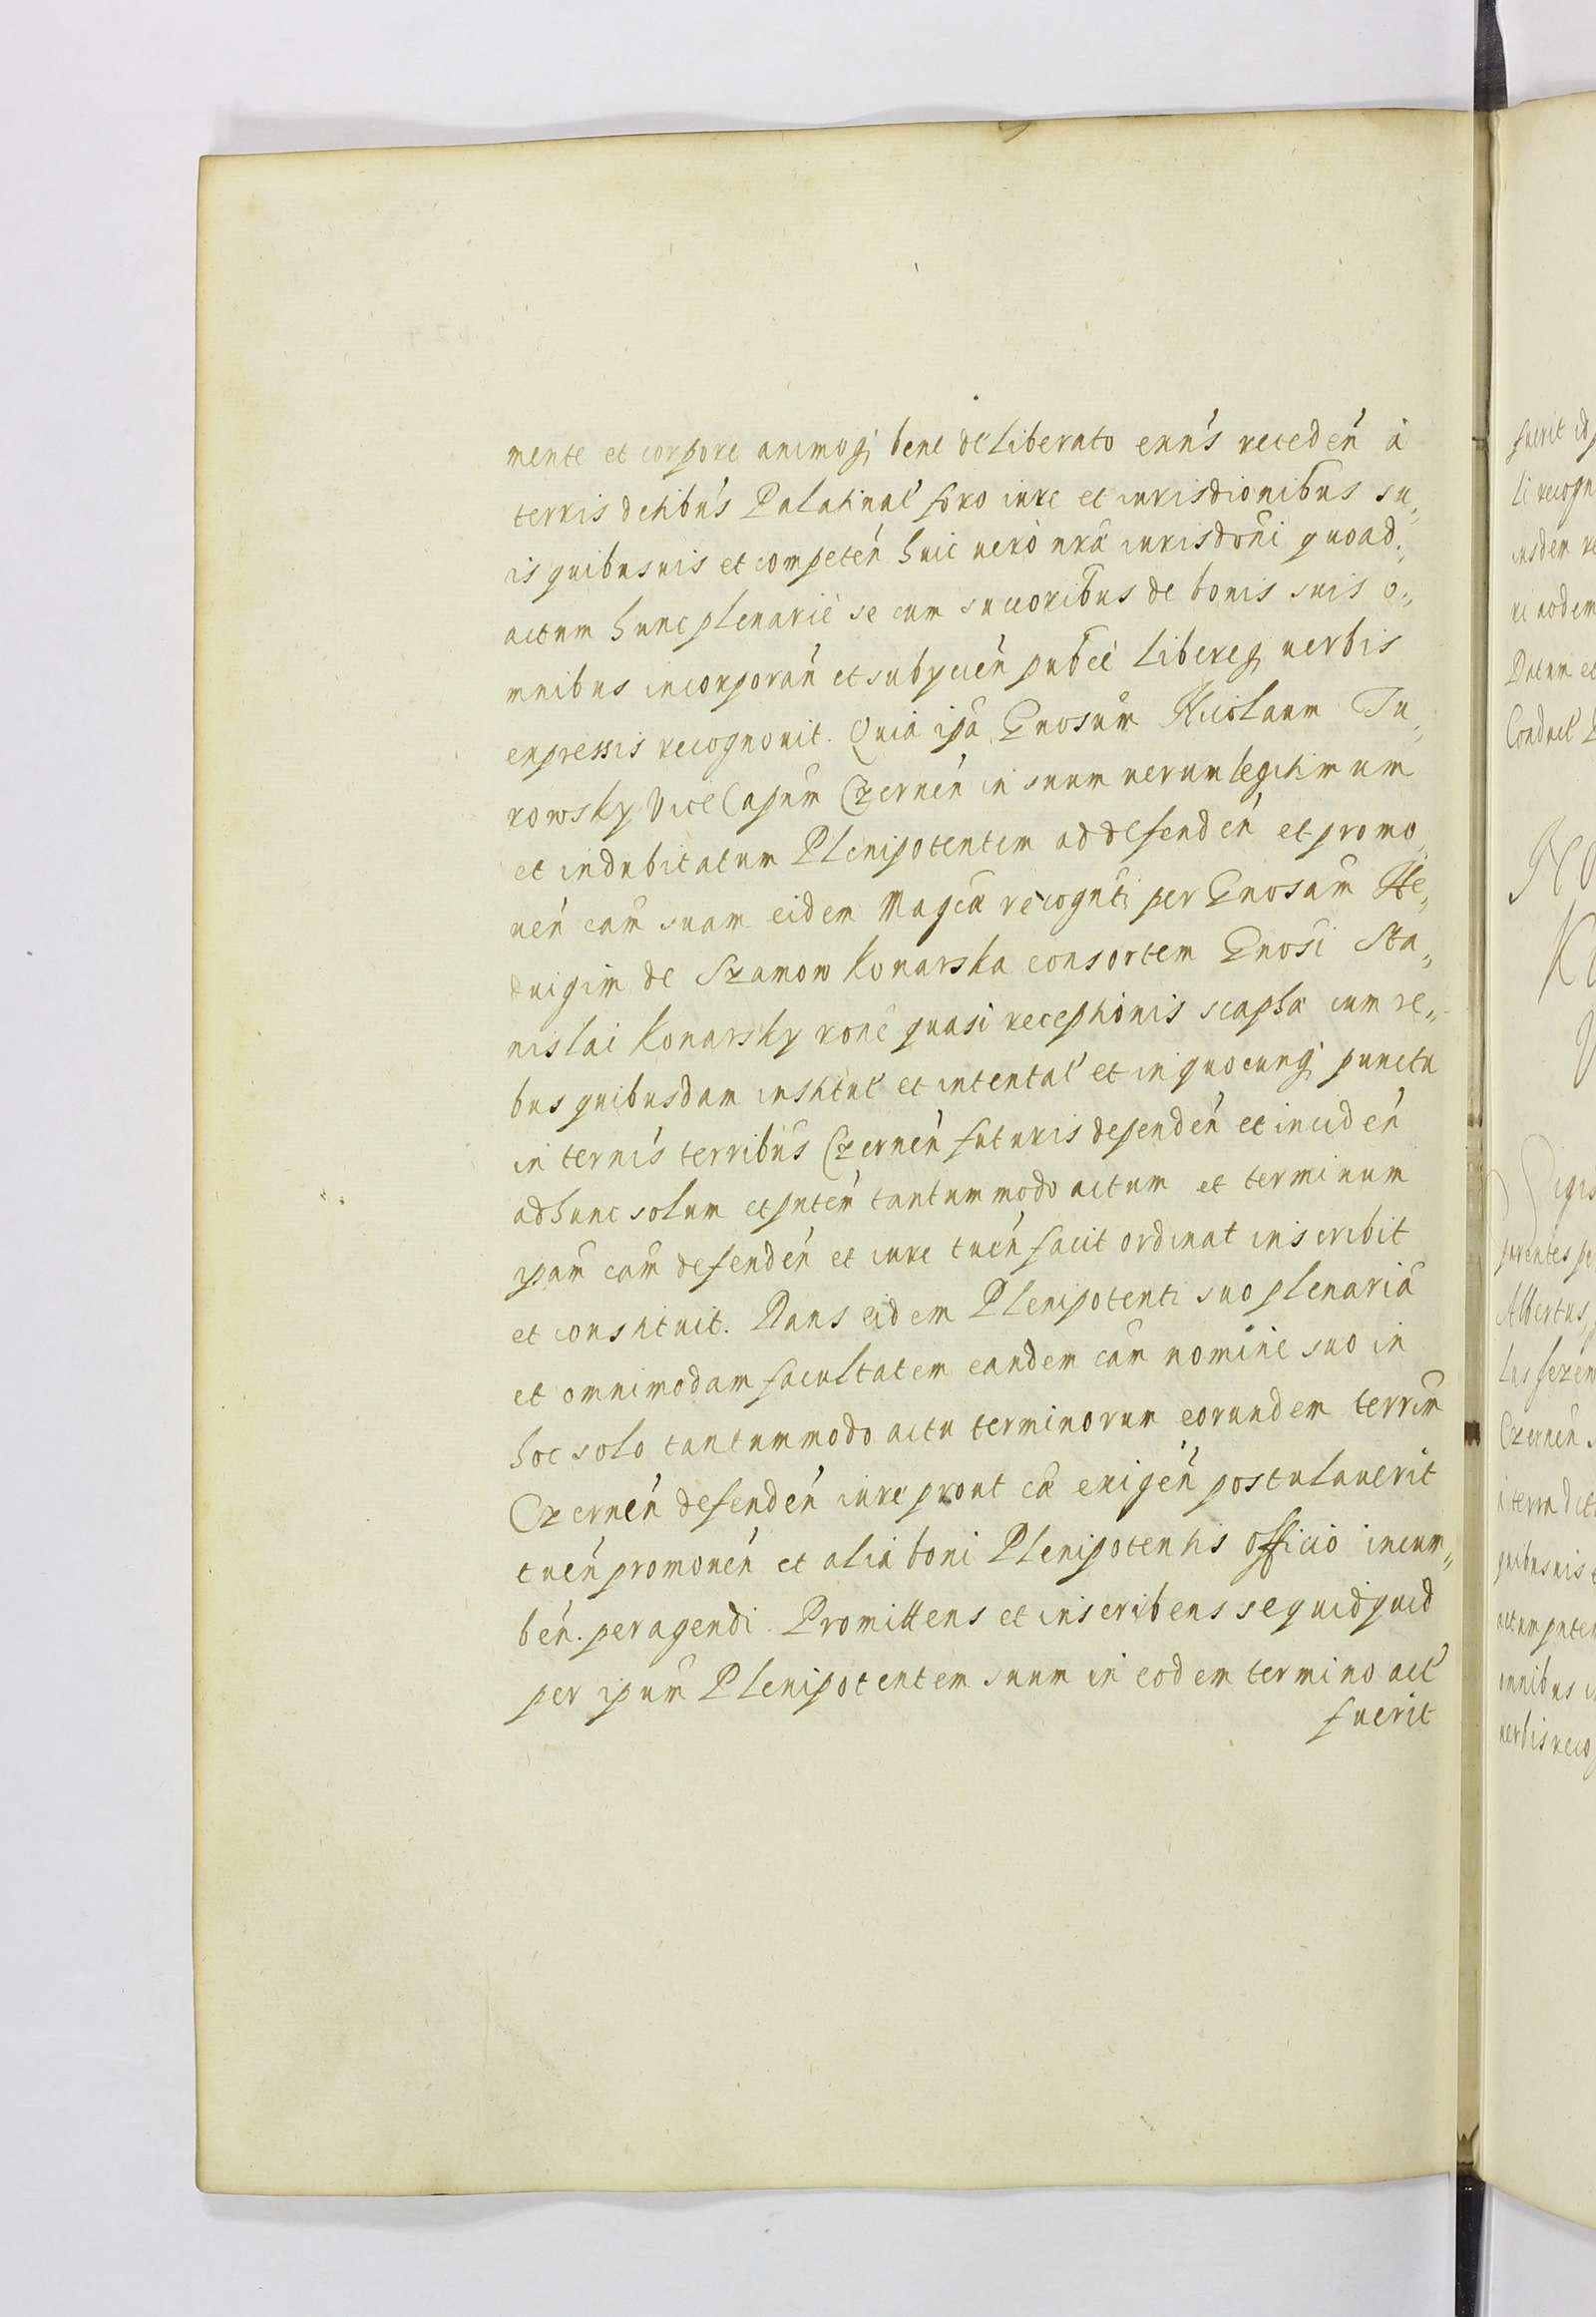 mente et corpore animoq; bene deliberato enns receden à
terris dctibus Palatinat foro iure et iurisdionibus su„
is quibusuis et competen huic uerò nrã iurisdoni quoad„
actum hunc plenarie se cum succoribus de bonis suis o„
mnibus incorporan et subycien pubce libereq; uerbis
expressis recognouit. Quia ipa Gnosum Nicolaum Tu„
rowsky Vice Capnum Czernen in suum uerum legitimum
et indubitatum Plenipotentem ad defenden et promo„
uen cam suam eidem Magcæ recognti per Gnosam He„
duigim de Szamow Konarska consortem Gnosi Sta„
nislai Konarsky rone quasi receptionis scaphæ cum re„
bus quibusdam institut et intentat et in quocunq; punctu
in ternis terribus Czernen futuris dependen et inciden
ad hunc solum et pnten tantummodo actum et terminum
ipam cam defenden et iure tuen facit ordinat inscribit
et constituit. Dans eidem Plenipotenti suo plenariã
et omnimodam facultatem eandem cam nomine suo in
hoc solo tantummodo actu terminorum eorundem terrim
Czernen defenden iure prout cã exigen postulauerit
tuen promouen et alia boni Plenipotentis officio incum„
ben. peragendi. Promittens et inscribens se quidquid
per ipum Plenipotentem suum in eodem termino act
fuerit